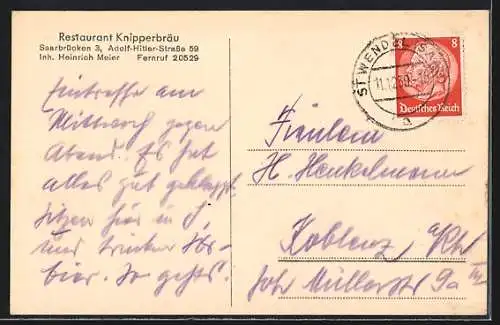 Restaurant Knipperbräu
Saarbrücken 3, Adolf-Hitler-Straße 59
Inh. Heinrich Meier Fernruf 20529
Eintreffe am
Mittwoch gegen
Abend. Es hat
alles gut geklappt.
Sitzen hier in
und trinken
bier. So gehts!
8 8
Deutsches Reich
ST WENDEL (SAAR)
11.12.39
a
Fräulein
H. Henkelmann
Koblenz a/Rh
Joh Müllerstr 9a III